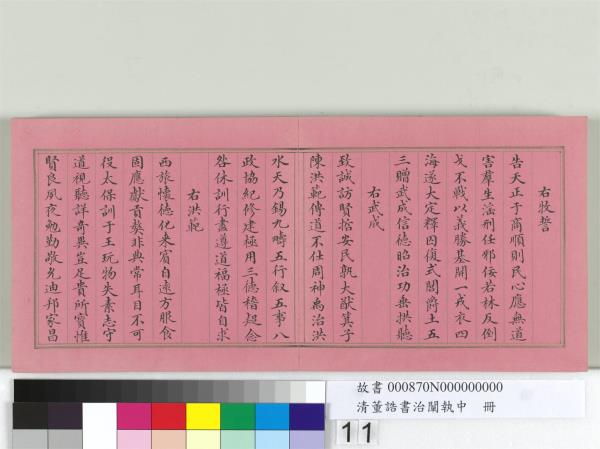 右牧誓
告天正于商順則民心應無道
害羣生淫刑任邪佞若林反倒
戈不戰以義勝基開一戎衣四
海遂大定釋囚復式閭爵土五
三贈武成信德昭治功垂拱聽
右武成
致誠訪賢捨安民孰大猷箕子
陳洪範傳道不仕周神禹治洪
水天乃錫九疇五行叙五事八
政協紀修建極用三德稽疑念
咎休訓行盡遵道福極皆自求
右洪範
西旅懷德化来賓自遠方服食
固應獻貢獒非典常耳目不可
役太保訓于王玩物失素志守
道視聽詳奇異豈足貴所寳惟
賢良夙夜勉勤敬允迪邦家昌
故書 000870N000000000
清董誥書治闡執中 冊
11